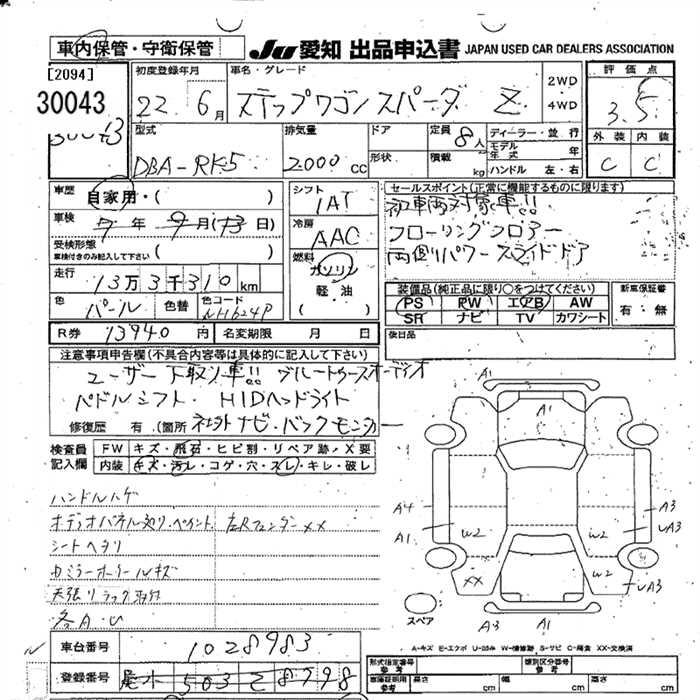 車内保管・守衛保管
JU 愛知 出品申込書 JAPAN USED CAR DEALERS ASSOCIATION
[2094]
30043
初度登録年月 22年 6月
車名・グレード ステップワゴンスパーダ Z
2WD
4WD
評価点 3.5
外装 内装
C C
型式 DBA-RK5
排気量 2000 cc
ドア
形状
定員 8人
積載 kg
ディーラー・並行
モデル年式 年
ハンドル 左・右
車歴 自家用・( )
車検 年 9月(13日)
受検形態
車検付きのみ記入して下さい
走行 13万3千310 km
色 パール 色替 色コード NH624P
R券 13940円 名変期限 月 日
シフト 1AT
冷房 AAC
燃料 ガソリン
軽・油
セールスポイント(正常に機能するものに限ります)
フローリングフロアー
両側パワースライドドア
装備品(純正品に限り○をつけてください)
PS RW エアB AW
SR ナビ TV カワシート
新車保証書
有・無
後日品
注意事項申告欄(不具合内容等は具体的に記入して下さい)
ユーザー下取り車!! ブルートゥースオーディオ
パドルシフト・HIDヘッドライト
修復歴 有 (箇所 社外ナビ・バックモニター
検査員記入欄
FW キズ・飛石・ヒビ割・リペア跡・X要
内装 キズ・汚レ・コゲ・穴・スレ・キレ・破レ
ハンドルハゲ
オーディオパネル処り・ペイント 左Rフェンダーxx
シートヘタリ
天張リ ラック取付
各A・U
車台番号 1028983
登録番号 503 8998
A1
A4
A1
W2
XX
A1
W2
W2
A3
UA3
UA3
A3 A1
スペア
A-キズ E-エクボ U-凹み W-補修跡 S-サビ C-腐食 XX-交換済
形式指定番号 類別区分番号
車庫証明用参考 長さ cm 幅 cm 高さ cm